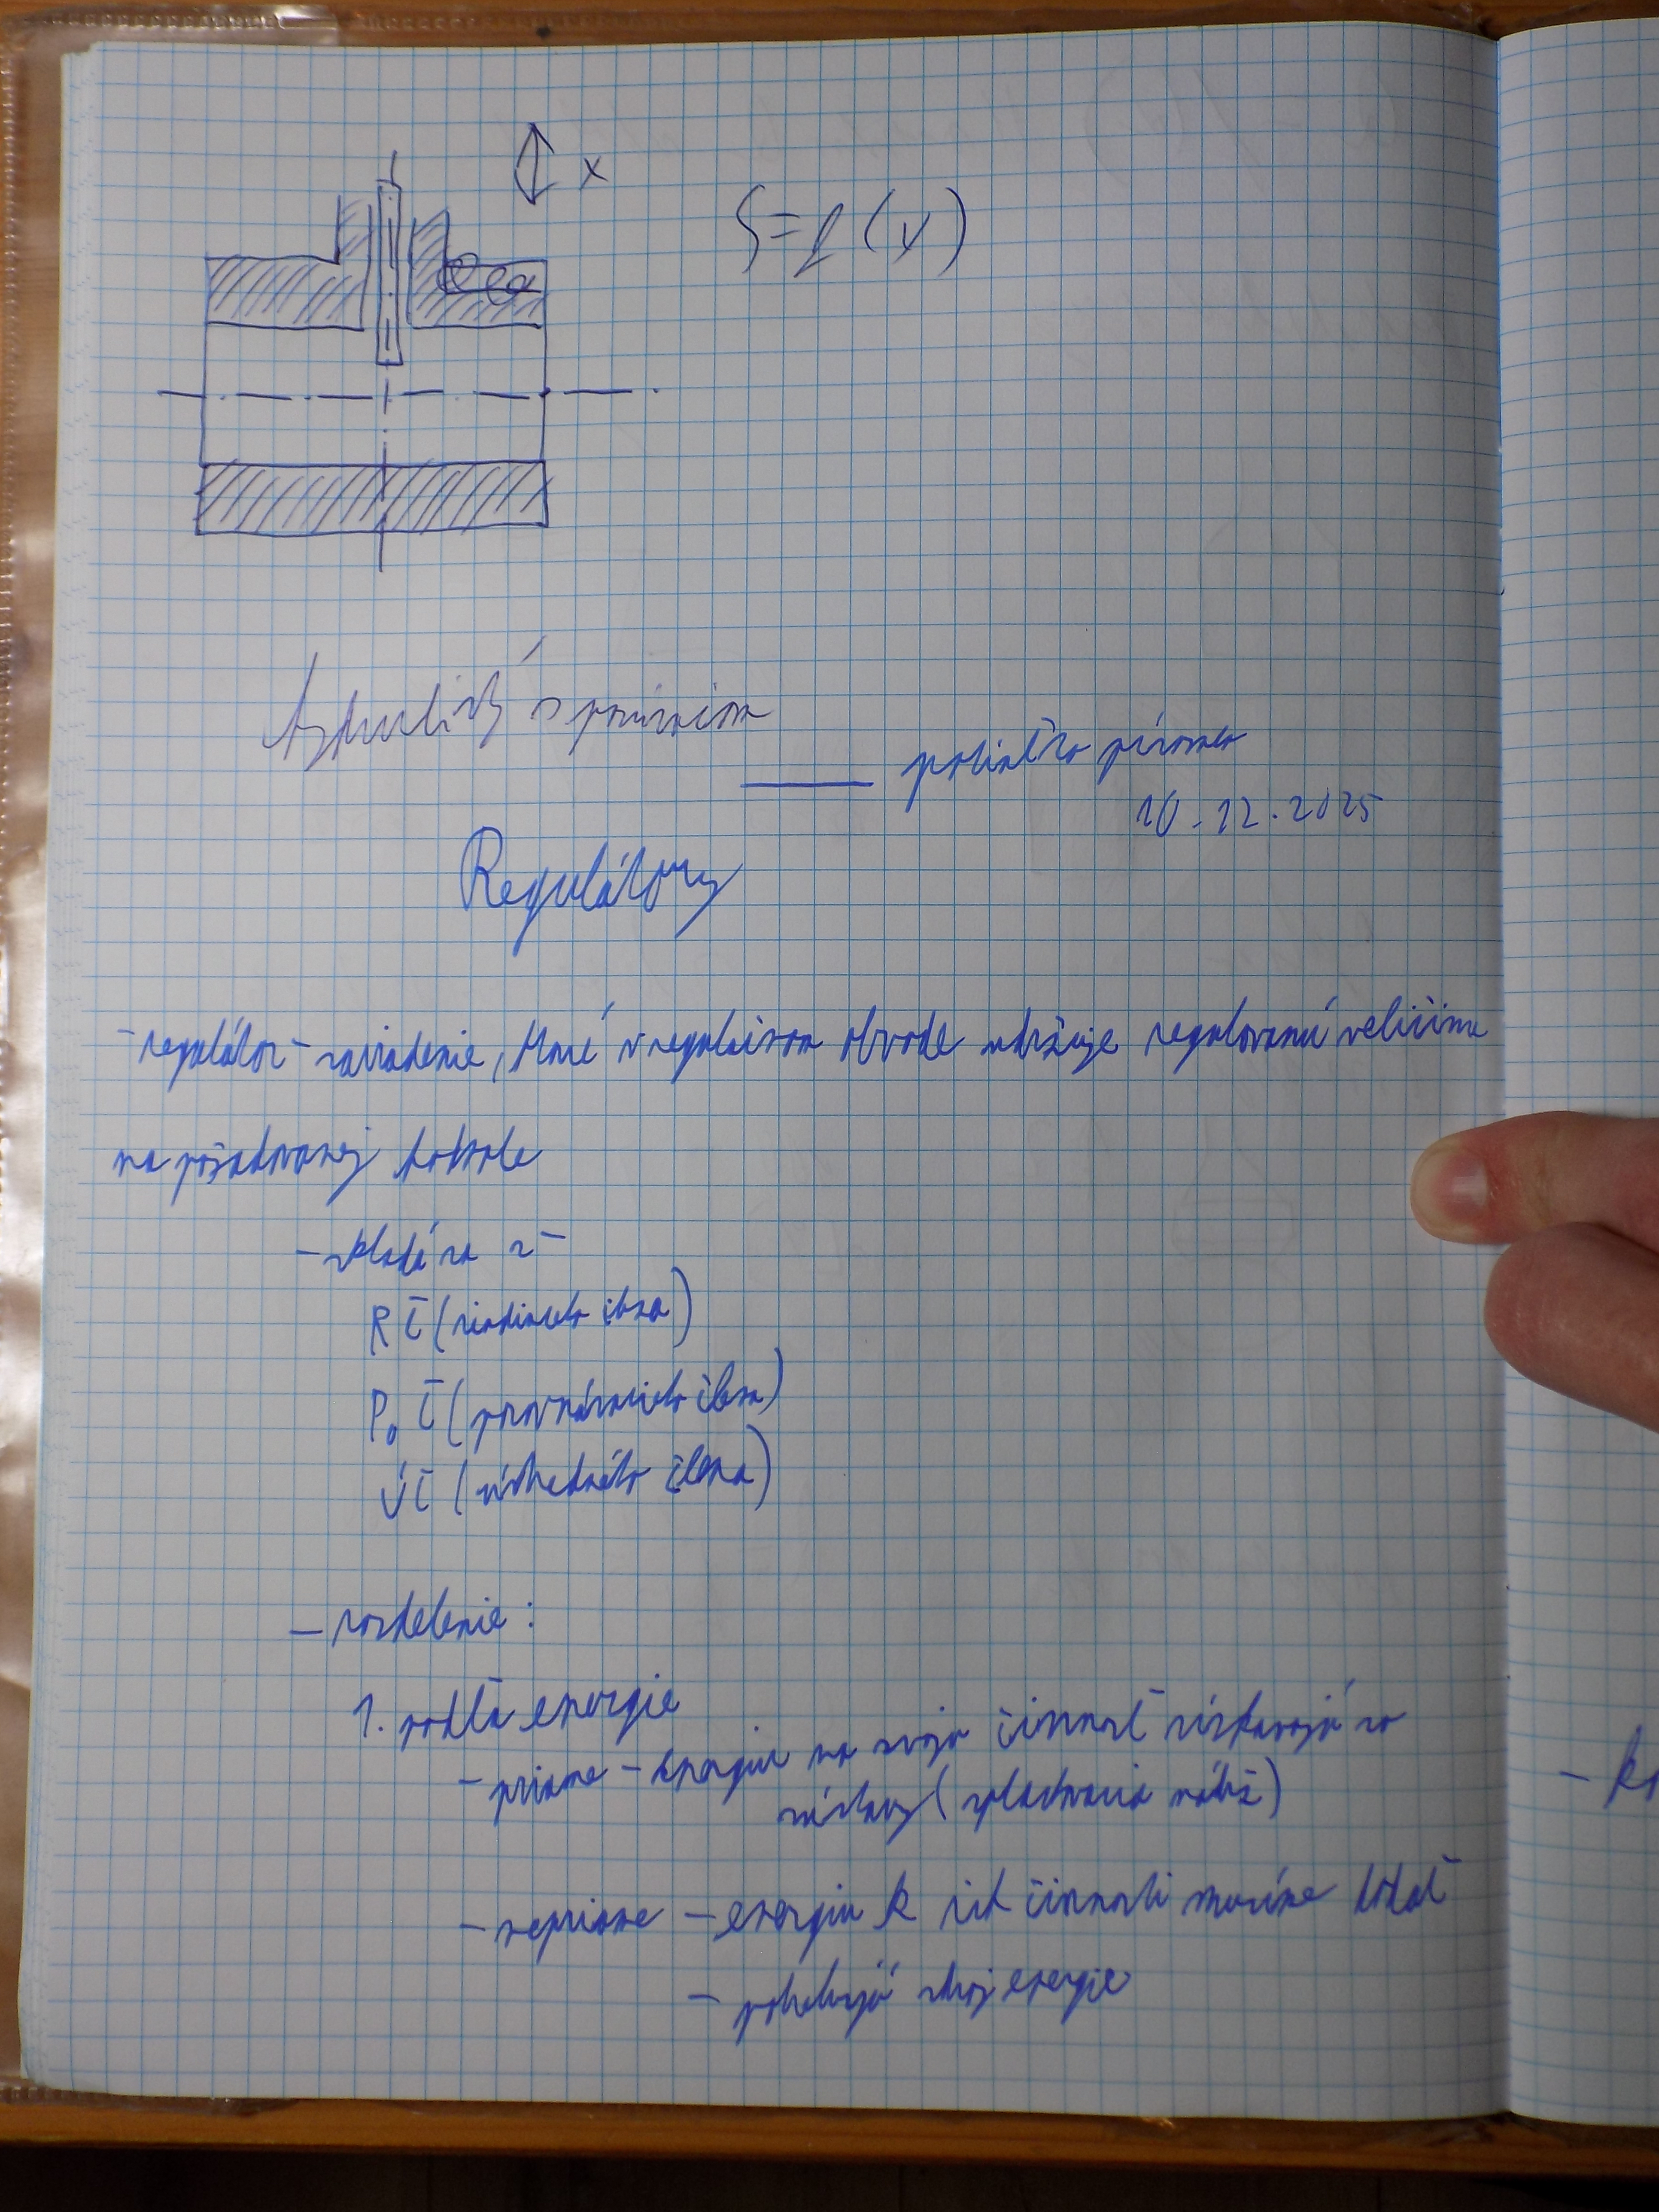 x
S=f(x)
pomôcka písomka
10.12.2025
Regulátory
- regulátor - zariadenie, ktoré v regulačnom obvode udržuje regulovanú veličinu
na požadovanej hodnote
- skladá sa z -
RČ (riadiaceho člena)
PoČ (porovnávacieho člena)
ÚČ (ústredného člena)
- rozdelenie :
1. podľa energie
- priame - energiu na svoju činnosť získavajú zo
sústavy (splachovacia nádrž)
- nepriame - energiu k ich činnosti musíme dodať
- potrebujú zdroj energie
- k